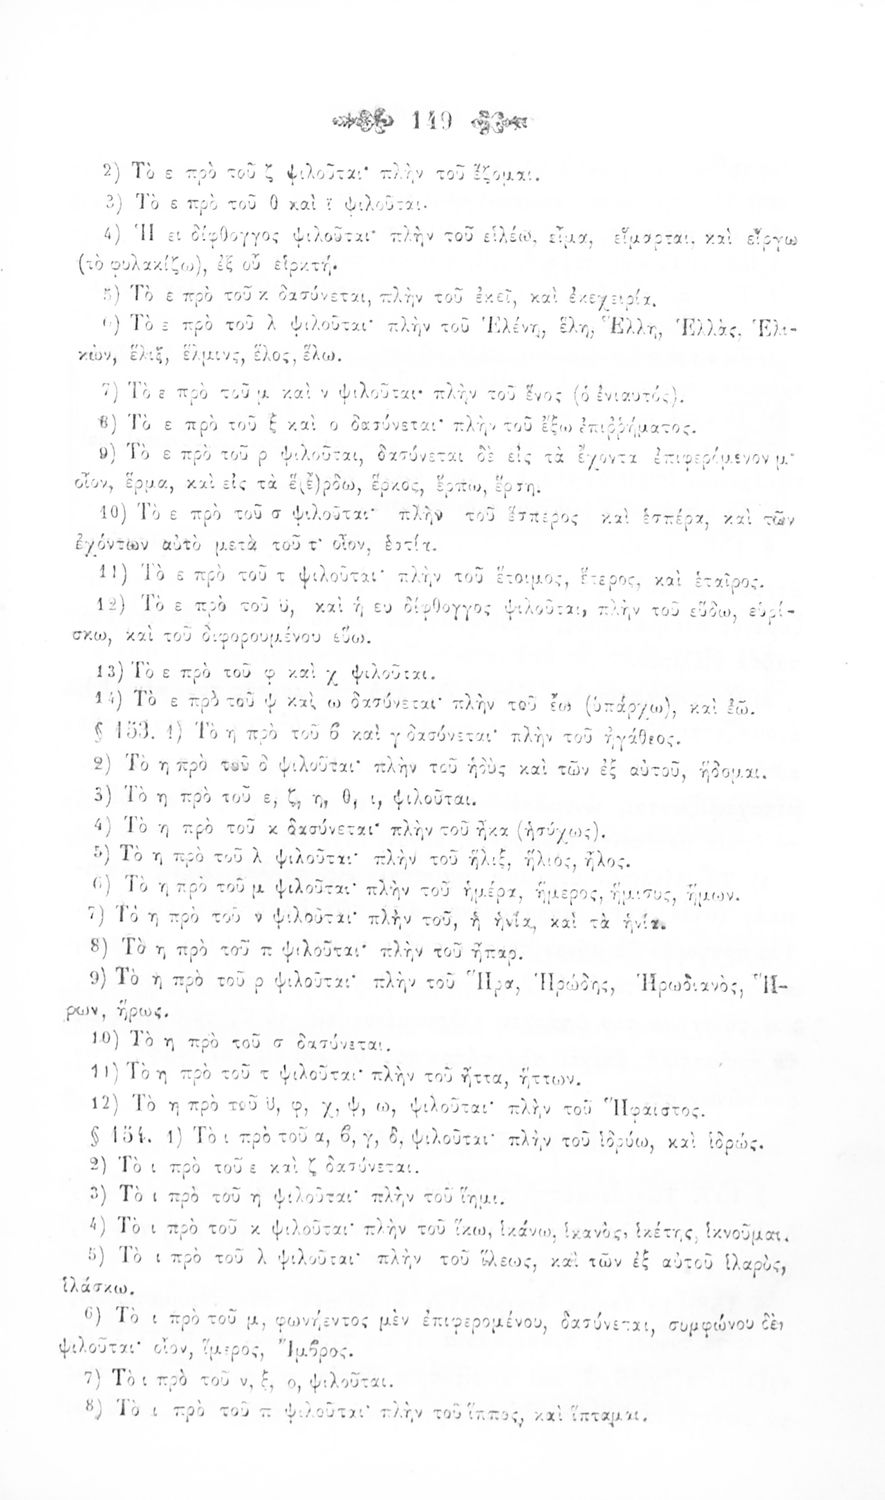 149
2) Τὸ ε πρὸ τοῦ ζ ψιλοῦται· πλὴν τοῦ ἕζομαι.
3) Τὸ ε πρὸ τοῦ θ καὶ ϊ ψιλοῦται.
4) Ἡ ει δίφθογγος ψιλοῦται· πλὴν τοῦ εἱλέω, εἷμα, εἵμαρται, καὶ εἵργω
(τὸ φυλακίζω), ἐξ οὗ εἱρκτή.
5) Τὸ ε πρὸ τοῦ κ δασύνεται, πλὴν τοῦ ἐκεῖ, καὶ ἐκεχειρία.
6) Τὸ ε πρὸ τοῦ λ ψιλοῦται· πλὴν τοῦ Ἑλένη, ἕλη, Ἕλλη, Ἑλλὰς, Ἑλι-
κὼν, ἕλιξ, ἕλμινς, ἕλος, ἕλω.
7) Τὸ ε πρὸ τοῦ μ καὶ ν ψιλοῦται· πλὴν τοῦ ἕνος (ὁ ἐνιαυτός).
8) Τὸ ε πρὸ τοῦ ξ καὶ ο δασύνεται· πλὴν τοῦ ἔξω ἐπιῤῥήματος.
9) Τὸ ε πρὸ τοῦ ρ ψιλοῦται, δασύνεται δὲ εἰς τὰ ἔχοντα ἐπιφερόμενον μ·
οἷον, ἕρμα, καὶ εἰς τὰ ἕ(ἔ)ρδω, ἕρκος, ἕρπω, ἕρση.
10) Τὸ ε πρὸ τοῦ σ ψιλοῦται· πλὴν τοῦ ἕσπερος καὶ ἑσπέρα, καὶ τῶν
ἐχόντων αὐτὸ μετὰ τοῦ τ· οἷον, ἑστία.
11) Τὸ ε πρὸ τοῦ τ ψιλοῦται· πλὴν τοῦ ἕτοιμος, ἕτερος, καὶ ἑταῖρος.
12) Τὸ ε πρὸ τοῦ ϋ, καὶ ἡ ευ δίφθογγος ψιλοῦται, πλὴν τοῦ εὕδω, εὑρί-
σκω, καὶ τοῦ διφορουμένου εὕω.
13) Τὸ ε πρὸ τοῦ φ καὶ χ ψιλοῦται.
14) Τὸ ε πρὸ τοῦ ψ καὶ ω δασύνεται· πλὴν τοῦ ἔω (ὑπάρχω), καὶ ἐῶ.
§ 153. 1) Τὸ η πρὸ τοῦ ϐ καὶ γ δασύνεται· πλὴν τοῦ ἠγάθεος.
2) Τὸ η πρὸ τοῦ δ ψιλοῦται· πλὴν τοῦ ἡδὺς καὶ τῶν ἐξ αὐτοῦ, ἥδομαι.
3) Τὸ η πρὸ τοῦ ε, ζ, η, θ, ι, ψιλοῦται.
4) Τὸ η πρὸ τοῦ κ δασύνεται· πλὴν τοῦ ἦκα (ἡσύχως).
5) Τὸ η πρὸ τοῦ λ ψιλοῦται· πλὴν τοῦ ἧλιξ, ἥλιος, ἧλος.
6) Τὸ η πρὸ τοῦ μ ψιλοῦται· πλὴν τοῦ ἡμέρα, ἥμερος, ἥμισυς, ἥμων.
7) Τὸ η πρὸ τοῦ ν ψιλοῦται· πλὴν τοῦ, ἡ ἡνία, καὶ τὰ ἡνία.
8) Τὸ η πρὸ τοῦ π ψιλοῦται· πλὴν τοῦ ἧπαρ.
9) Τὸ η πρὸ τοῦ ρ ψιλοῦται· πλὴν τοῦ Ἥρα, Ἡρώδης, Ἡρωδιανὸς, Ἥ-
ρων, ἥρως.
10) Τὸ η πρὸ τοῦ σ δασύνεται.
11) Τὸ η πρὸ τοῦ τ ψιλοῦται· πλὴν τοῦ ἧττα, ἥττων.
12) Τὸ η πρὸ τοῦ ϋ, φ, χ, ψ, ω, ψιλοῦται· πλὴν τοῦ Ἥφαιστος.
§ 154. 1) Τὸ ι πρὸ τοῦ α, ϐ, γ, δ, ψιλοῦται· πλὴν τοῦ ἱδρύω, καὶ ἱδρώς.
2) Τὸ ι πρὸ τοῦ ε καὶ ζ δασύνεται.
3) Τὸ ι πρὸ τοῦ η ψιλοῦται· πλὴν τοῦ ἵημι.
4) Τὸ ι πρὸ τοῦ κ ψιλοῦται· πλὴν τοῦ ἵκω, ἱκάνω, ἱκανὸς, ἱκέτης, ἱκνοῦμαι.
5) Τὸ ι πρὸ τοῦ λ ψιλοῦται· πλὴν τοῦ ἵλεως, καὶ τῶν ἐξ αὐτοῦ ἱλαρὸς,
ἱλάσκω.
6) Τὸ ι πρὸ τοῦ μ, φωνήεντος μὲν ἐπιφερομένου, δασύνεται, συμφώνου δὲ,
ψιλοῦται· οἷον, ἵμερος, Ἴμϐρος.
7) Τὸ ι πρὸ τοῦ ν, ξ, ο, ψιλοῦται.
8) Τὸ ι πρὸ τοῦ π ψιλοῦται· πλὴν τοῦ ἵππος, καὶ ἵπταμαι.